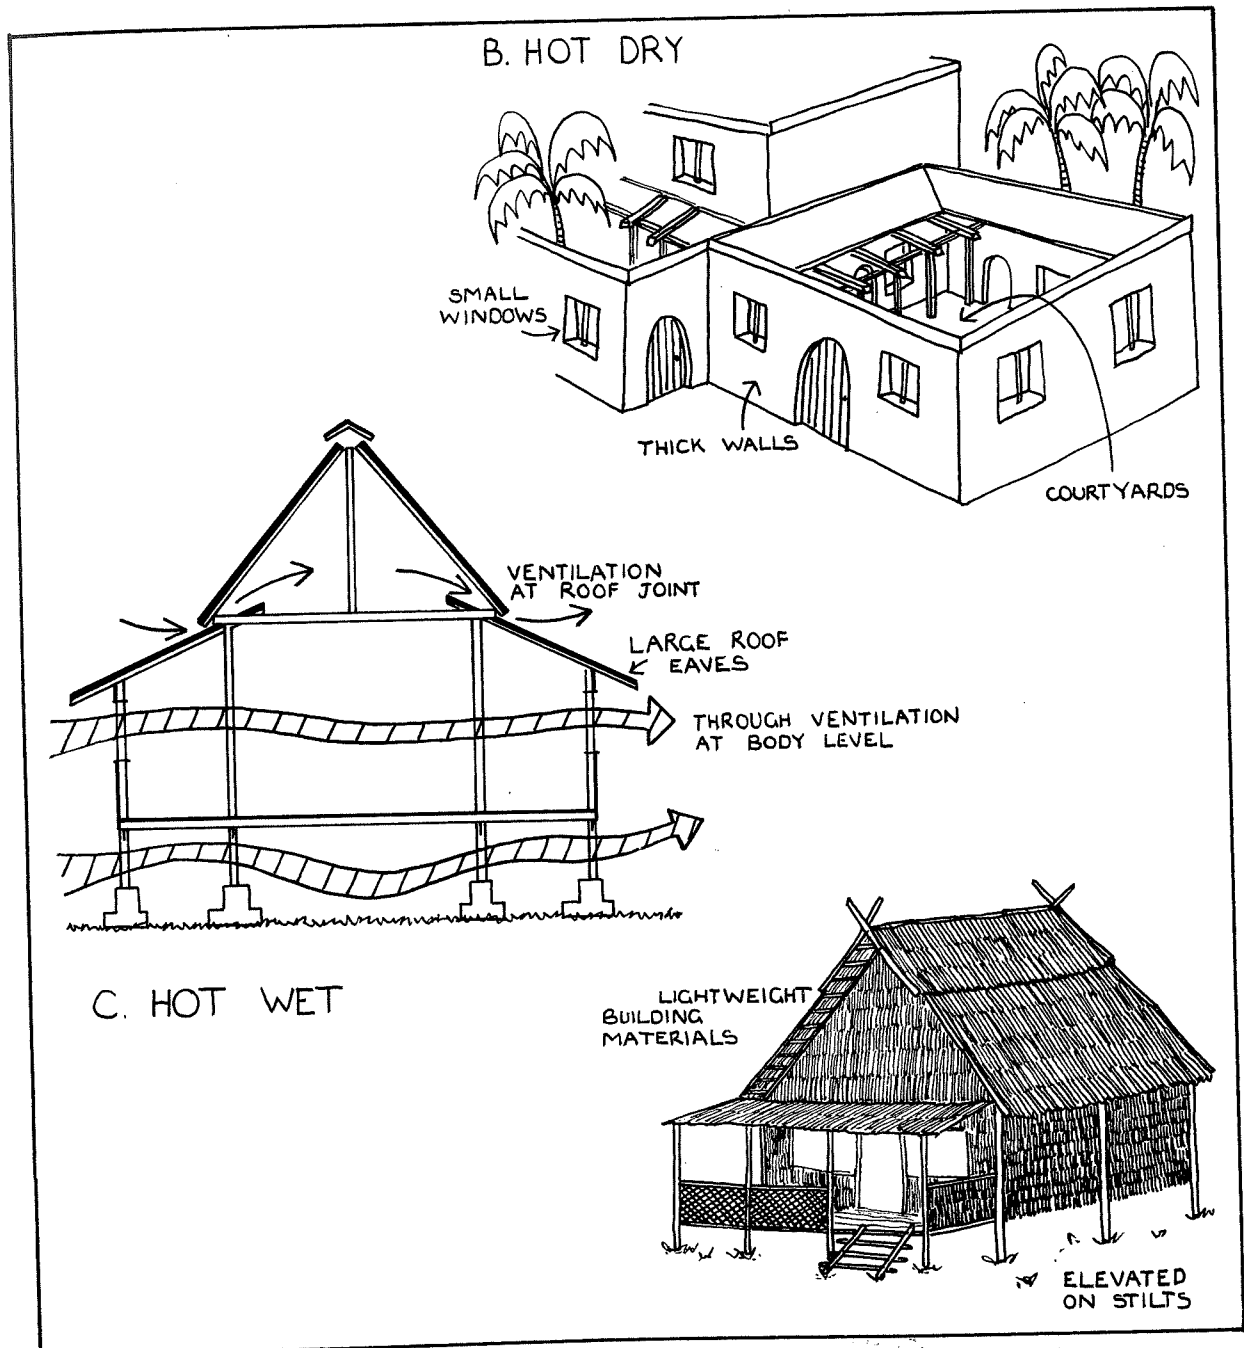 B. HOT DRY
SMALL
WINDOWS
THICK WALLS
COURTYARDS
VENTILATION
AT ROOF JOINT
LARGE ROOF
EAVES
THROUGH VENTILATION
AT BODY LEVEL
C. HOT WET
LIGHTWEIGHT
BUILDING
MATERIALS
ELEVATED
ON STILTS